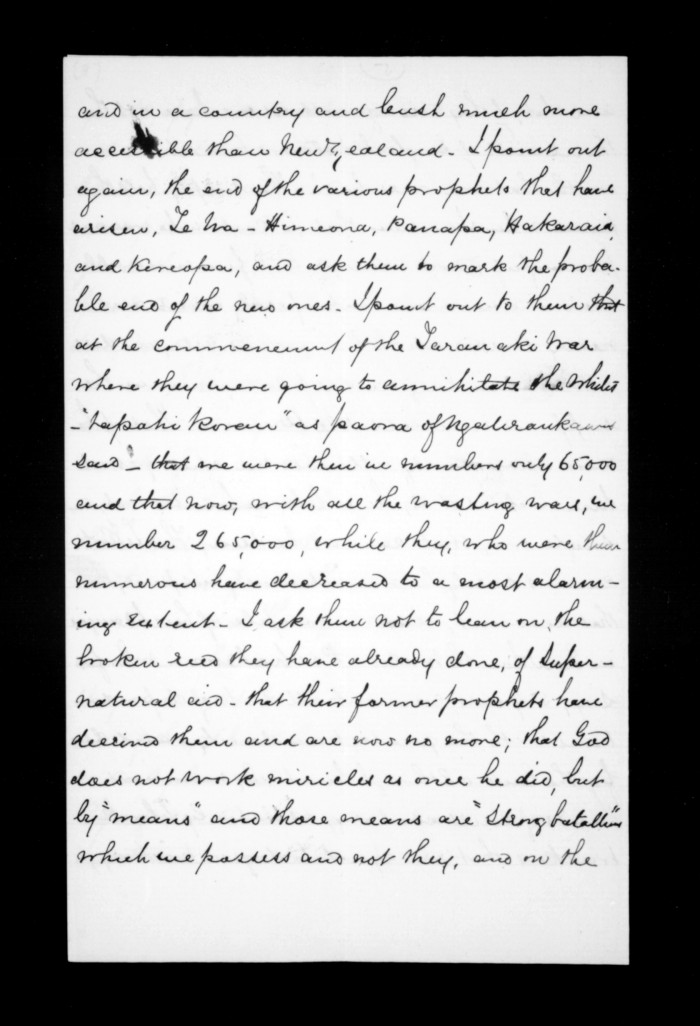 and in a country and bush much more
accessible than New Zealand - I point out
again, the end of the various prophets that have
arisen, Te Ua - Himeona, Panapa, Hakaraia,
and Kereopa, and ask them to mark the proba-
ble end of the new ones - I point out to them that
at the commencement of the Taranaki War
where they were going to annihilate the Whites
- "tapahi Korau" as paora of
said - that we were then in numbers only 65,000
and that now, with all the wasting wars, we
number 265,000, while they, who were then
numerous have decreased to a most alarm-
ing extent - I ask them not to lean on, the
broken reed they have already done, of Super-
natural aid - that their former prophets have
deceived them and are now no more; that God
does not work miricles as once he did, but
by "means" and those means are "Strong batallions"
which we possess and not they, and on the